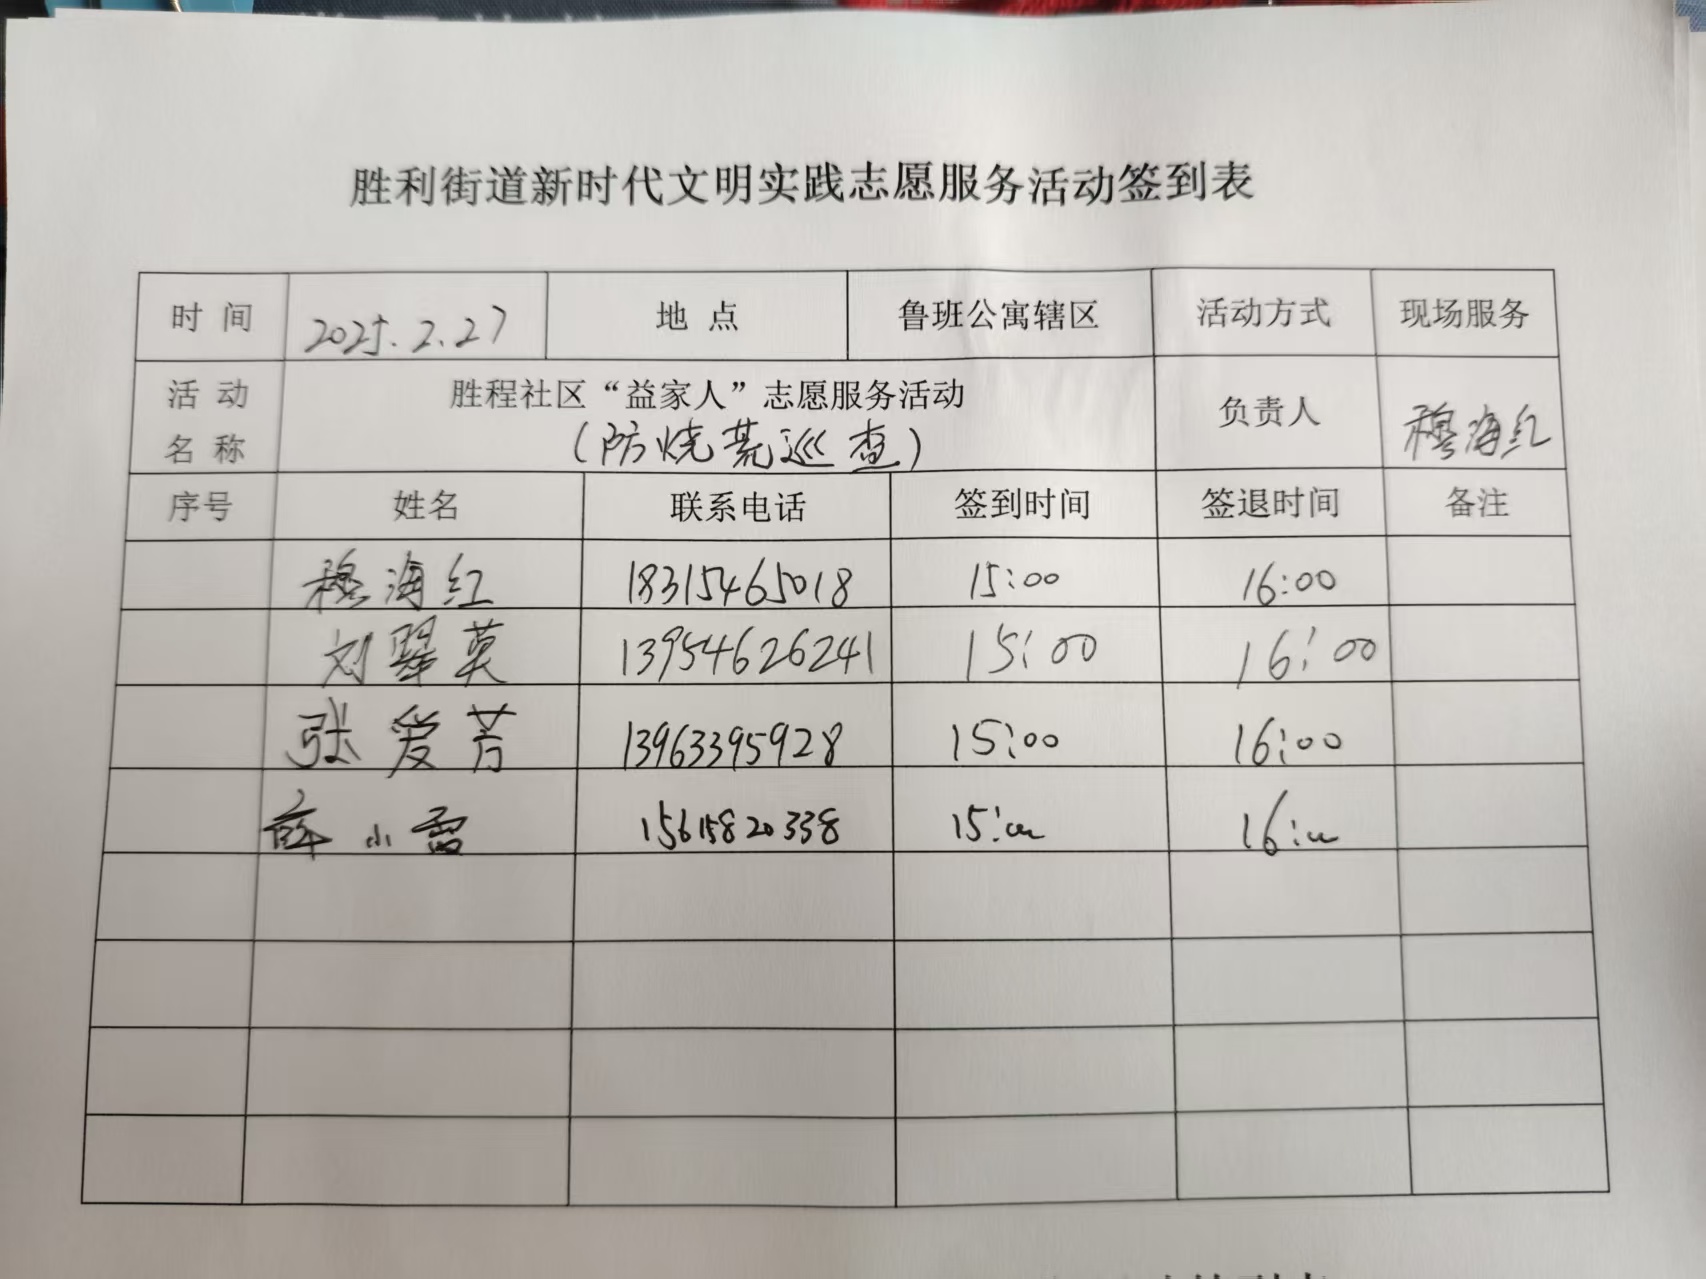 胜利街道新时代文明实践志愿服务活动签到表
时 间 2025.2.27 地 点 鲁班公寓辖区 活动方式 现场服务
活 动 名 称 胜程社区“益家人”志愿服务活动 (防烧荒巡查) 负责人 穆海红
序号 姓名 联系电话 签到时间 签退时间 备注
穆海红 18315465018 15:00 16:00
刘翠英 13954626241 15:00 16:00
张爱芳 13963395928 15:00 16:00
薛小雷 15615820338 15:00 16:00